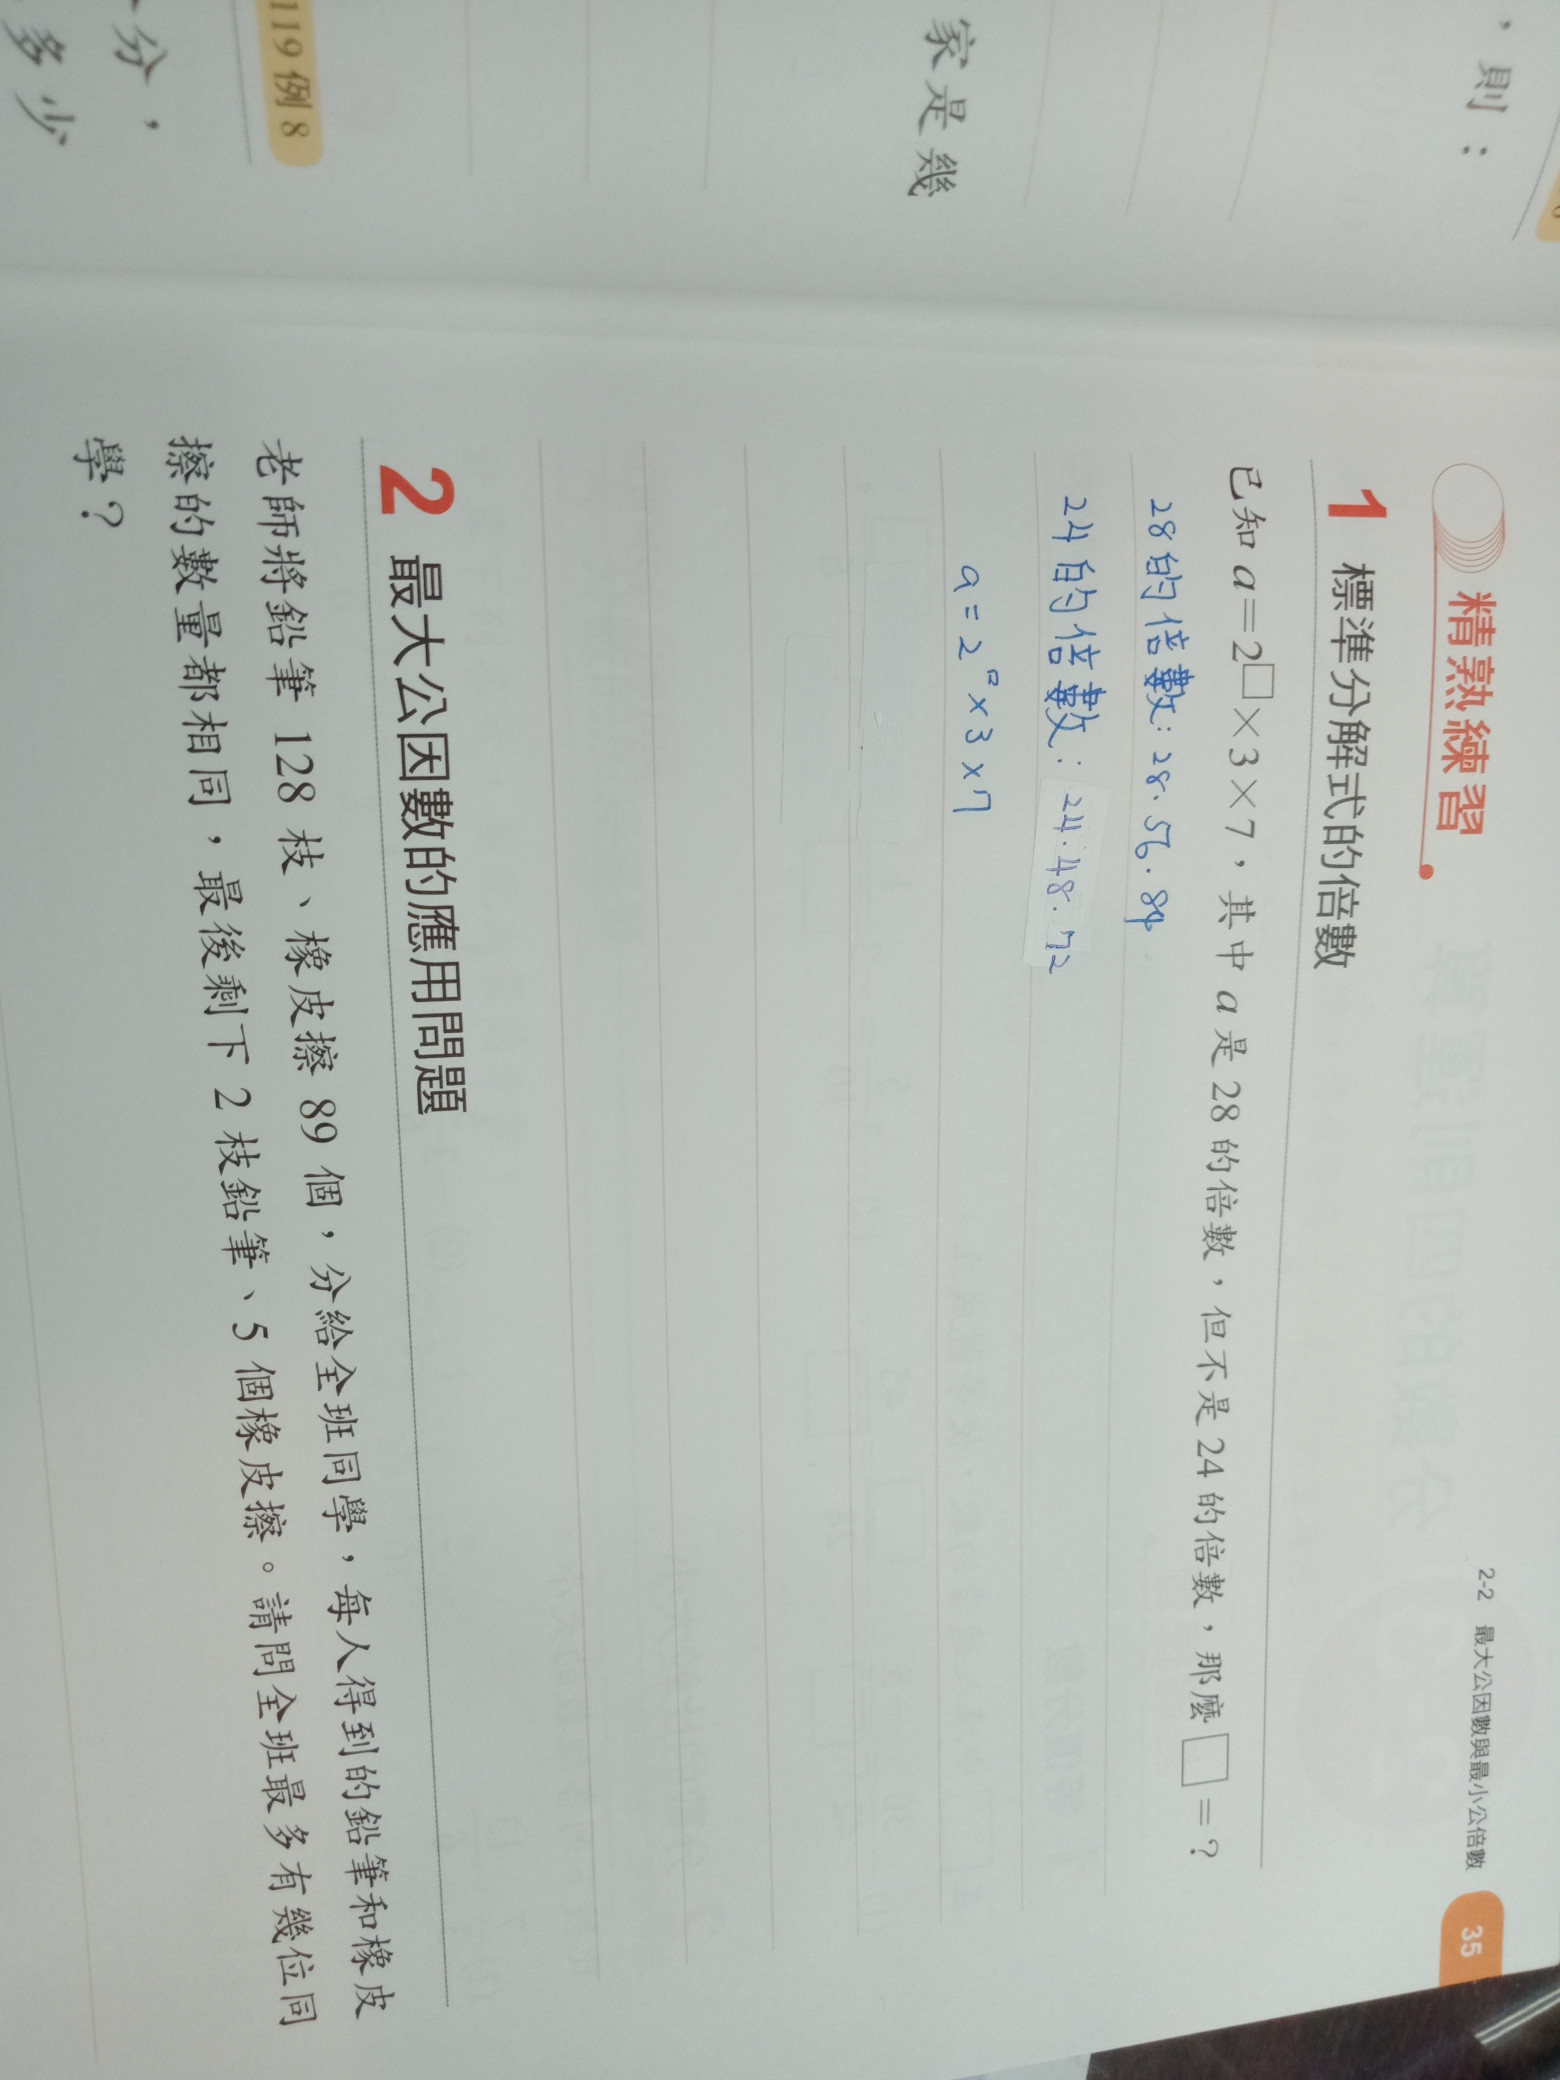 ，則：
家是幾
119 例 8
分，
多少
2-2 最大公因數與最小公倍數 35
精熟練習
1 標準分解式的倍數
已知 a=2□×3×7，其中 a 是 28 的倍數，但不是 24 的倍數，那麼□=？
28的倍數:28.56.84
24的倍數:24.48.72
a=2□×3×7
2 最大公因數的應用問題
老師將鉛筆 128 枝、橡皮擦 89 個，分給全班同學，每人得到的鉛筆和橡皮
擦的數量都相同，最後剩下 2 枝鉛筆、5 個橡皮擦。請問全班最多有幾位同
學？